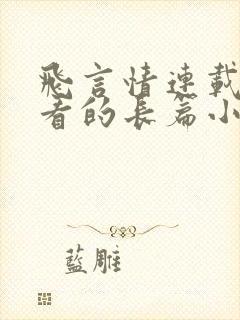 飛言情連載
者的長篇小
藍雕